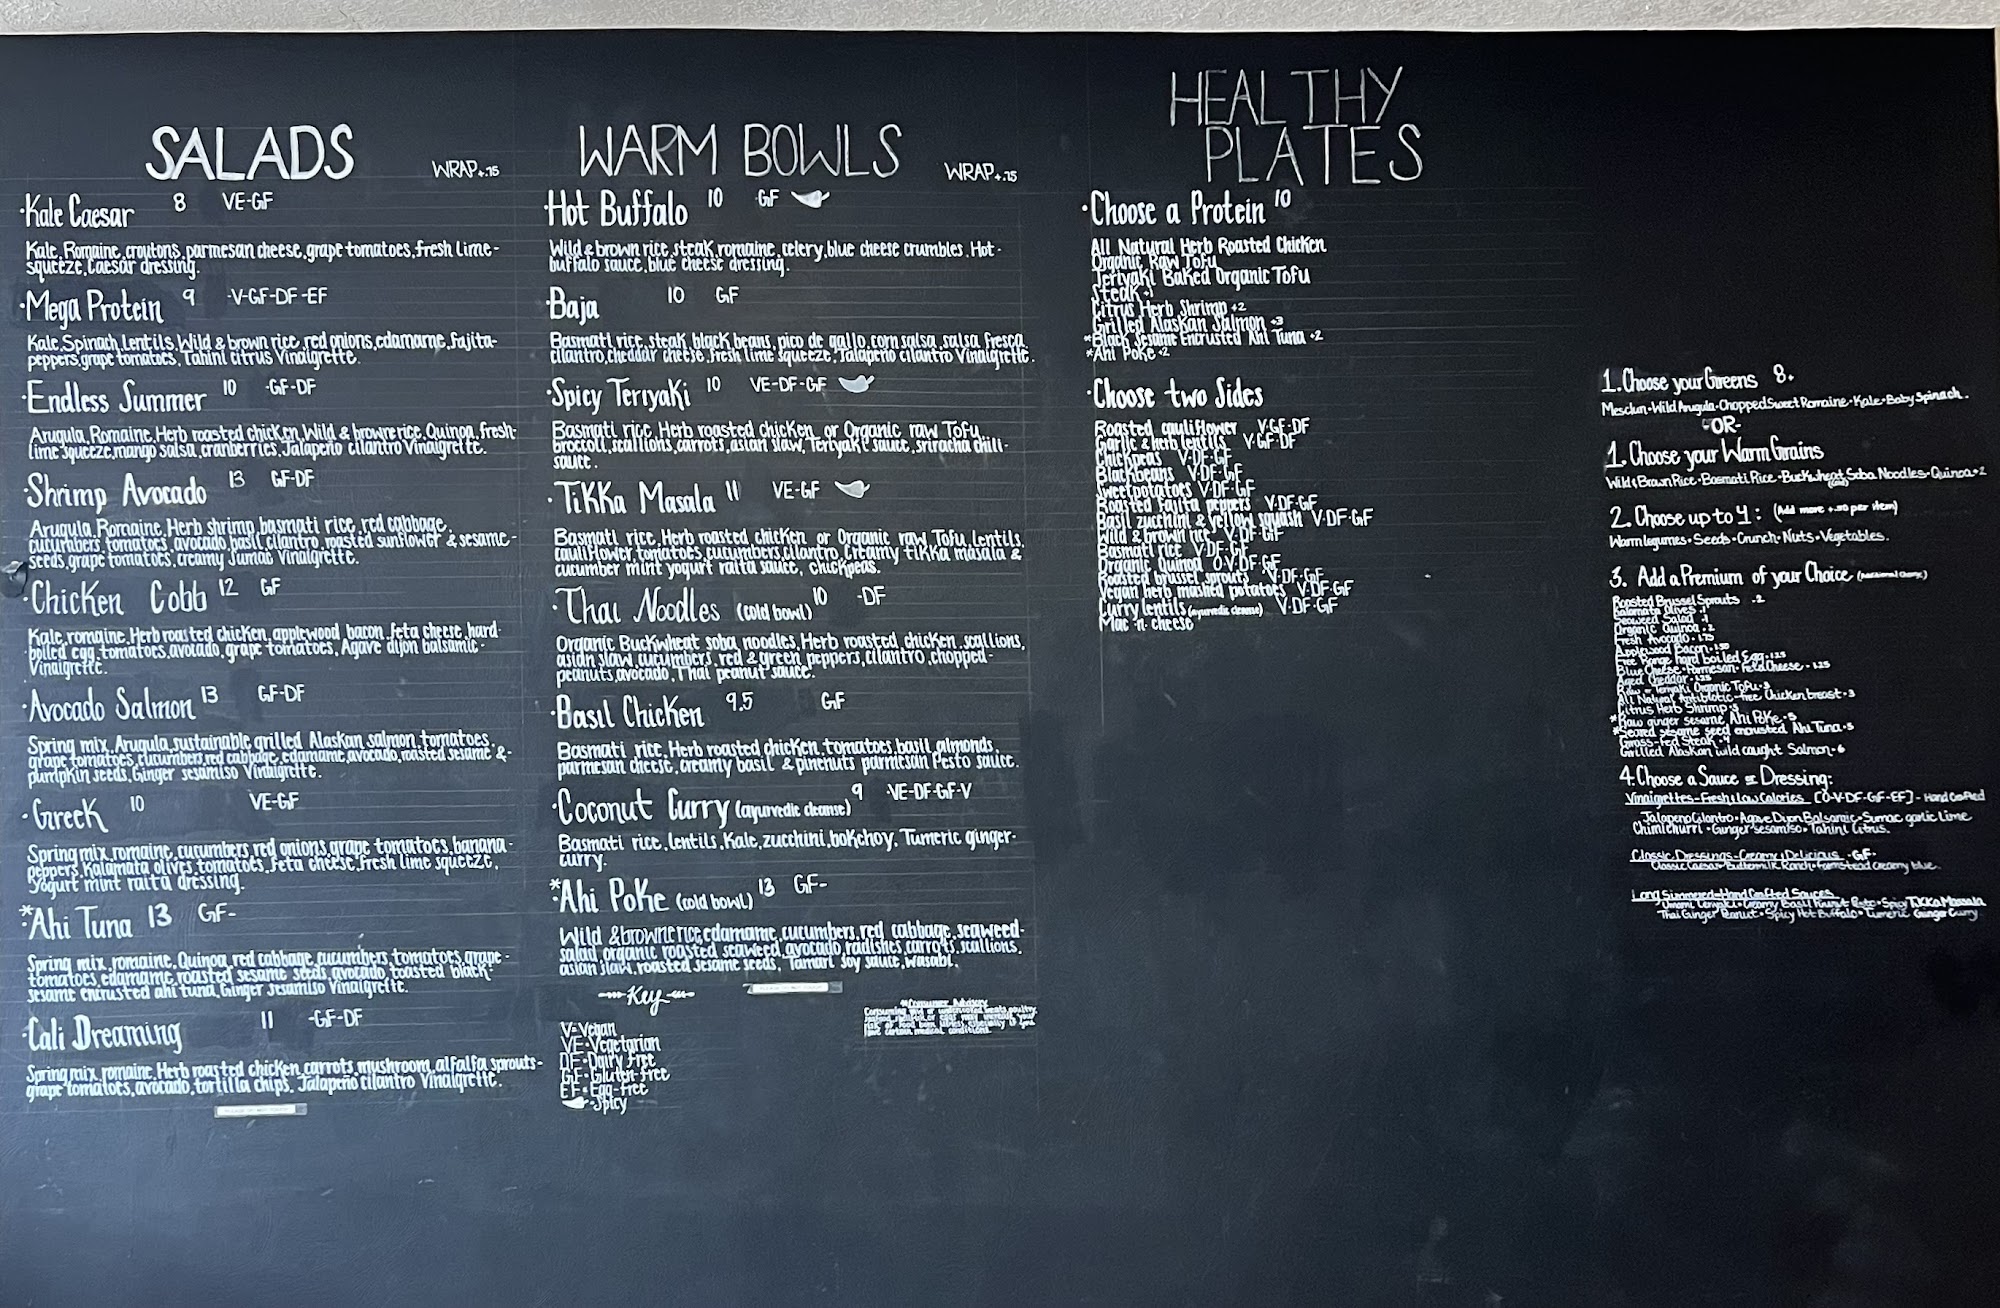 SALADS WRAP+.75
·Kale Caesar 8 VE-GF
Kale, Romaine, croutons, parmesan cheese, grape tomatoes, fresh lime-
squeeze, Caesar dressing.
·Mega Protein 9 -V-GF-DF-EF
Kale, Spinach, lentils, Wild & brown rice, red onions, edamame, fajita-
peppers, grape tomatoes, Tahini citrus Vinaigrette.
·Endless Summer 10 -GF-DF
Arugula, Romaine, Herb roasted chicken, Wild & browne rice, Quinoa, fresh-
lime squeeze, mango salsa, cranberries, Jalapeño cilantro Vinaigrette.
·Shrimp Avocado 13 GF-DF
Arugula, Romaine, Herb shrimp, basmati rice, red cabbage,
cucumbers, tomatoes, avocado, basil, cilantro, roasted sunflower & sesame-
seeds, grape tomatoes, creamy Sumac Vinaigrette.
·Chicken Cobb 12 GF
Kale, romaine, Herb roasted chicken, applewood bacon, feta cheese, hard-
boiled egg, tomatoes, avocado, grape tomatoes, Agave dijon balsamic-
Vinaigrette.
·Avocado Salmon 13 GF-DF
Spring mix, Arugula, sustainable grilled Alaskan salmon, tomatoes,
grape tomatoes, cucumbers, red cabbage, edamame, avocado, roasted sesame &-
pumpkin seeds, Ginger sesamiso Vinaigrette.
·Greek 10 VE-GF
Spring mix, romaine, cucumbers, red onions, grape tomatoes, banana-
peppers, Kalamata olives, tomatoes, feta cheese, fresh lime squeeze,
Yogurt mint raita dressing.
*Ahi Tuna 13 GF-
Spring mix, romaine, Quinoa, red cabbage, cucumbers, tomatoes, grape-
tomatoes, edamame, roasted sesame seeds, avocado, toasted black-
sesame encrusted ahi tuna, Ginger sesamiso Vinaigrette.
·Cali Dreaming 11 -GF-DF
Spring mix, romaine, Herb roasted chicken, carrots, mushroom, alfalfa sprouts-
grape tomatoes, avocado, tortilla chips, Jalapeño cilantro Vinaigrette.
WARM BOWLS WRAP+.75
·Hot Buffalo 10 GF
Wild & brown rice, steak, romaine, celery, blue cheese crumbles, Hot-
buffalo sauce, blue cheese dressing.
·Baja 10 GF
Basmati rice, steak, black beans, pico de gallo, corn salsa, salsa fresca,
cilantro, cheddar cheese, fresh lime squeeze, Jalapeño cilantro Vinaigrette.
·Spicy Teriyaki 10 VE-DF-GF
Basmati rice, Herb roasted chicken or Organic raw Tofu,
broccoli, scallions, carrots, asian slaw, Teriyaki sauce, sriracha chili-
sauce.
·Tikka Masala 11 VE-GF
Basmati rice, Herb roasted chicken or Organic raw Tofu, lentils,
cauliflower, tomatoes, cucumbers, cilantro, creamy tikka masala &
cucumber mint yogurt raita sauce, chickpeas.
·Thai Noodles (cold bowl) 10 -DF
Organic Buckwheat soba noodles, Herb roasted chicken, scallions,
asian slaw, cucumbers, red & green peppers, cilantro, chopped-
peanuts, avocado, Thai peanut sauce.
·Basil Chicken 9.5 GF
Basmati rice, Herb roasted chicken, tomatoes, basil, almonds,
parmesan cheese, creamy basil & pinenuts parmesan Pesto sauce.
·Coconut Curry (ayurvedic cleanse) 9 ·VE-DF-GF-V
Basmati rice, lentils, Kale, zucchini, bokchoy, Tumeric ginger-
curry.
*Ahi Poke (cold bowl) 13 GF-
Wild & browne rice, edamame, cucumbers, red cabbage, seaweed-
salad, organic roasted seaweed, avocado, radishes, carrots, scallions,
asian slaw, roasted sesame seeds, Tamari soy sauce, wasabi.
Key
V-Vegan
VE-Vegetarian
DF-Dairy free
GF-Gluten-free
EF-Egg-free
-Spicy
*Consumer Advisory
Consuming raw or undercooked meats, poultry,
seafood, shellfish or eggs may increase your
risk of food born illness, especially if you
have certain medical conditions.
HEALTHY
PLATES
·Choose a Protein 10
All Natural Herb Roasted Chicken
Organic Raw Tofu
Teriyaki Baked Organic Tofu
Steak +1
Citrus Herb Shrimp +2
Grilled Alaskan Salmon +3
*Black Sesame Encrusted Ahi Tuna +2
*Ahi Poke +2
·Choose two Sides
Roasted cauliflower V·GF·DF
Garlic & herb lentils V·GF·DF
Chickpeas V·DF·GF
Blackbeans V·DF·GF
Sweetpotatoes V·DF·GF
Roasted fajita peppers V·DF·GF
Basil zucchini & yellow squash V·DF·GF
Wild & brown rice V·DF·GF
Basmati rice V·DF·GF
Organic Quinoa O·V·DF·GF
Roasted brussel sprouts V·DF·GF
Vegan herb mashed potatoes V·DF·GF
Curry lentils (ayurvedic cleanse) V·DF·GF
Mac n' cheese
1. Choose your Greens 8.
Mesclun·Wild Arugula·Chopped Sweet Romaine·Kale·Baby Spinach.
-OR-
1. Choose your Warm Grains
Wild & Brown Rice·Basmati Rice·Buckwheat Soba Noodles·Quinoa+2
(cold)
2. Choose up to 4: (Add more +.50 per item)
Warm legumes·Seeds·Crunch·Nuts·Vegetables.
3. Add a Premium of your Choice (Additional Charge)
Roasted Brussel Sprouts .2
Kalamata Olives .1
Seaweed Salad .1
Organic Quinoa .2
Fresh Avocado .1.75
Applewood Bacon .1.50
Free Range hard boiled Egg .1.25
Blue Cheese·Parmesan·Feta Cheese -1.25
Aged Cheddar .1.25
Raw or Teriyaki Organic Tofu .3
All Natural Antibiotic-free Chicken breast .3
Citrus Herb Shrimp .5
*Raw ginger sesame Ahi Poke .5
*Seared sesame seed encrusted Ahi Tuna .5
Grass-fed Steak .4
Grilled Alaskan wild caught Salmon .6
4. Choose a Sauce or Dressing:
Vinaigrettes-Fresh & Low Calories [O-V-DF-GF-EF] - Hand Crafted
Jalapeno Cilantro·Agave Dijon Balsamic·Sumac garlic Lime
Chimichurri·Ginger sesamiso·Tahini Citrus.
Classic Dressings-Creamy & Delicious ·GF·
Classic Caesar·Buttermilk Ranch·Farmstead creamy blue.
Long Simmered-Hand Crafted Sauces
Umami Teriyaki·Creamy Basil Pinenut Pesto·Spicy Tikka Massala
Thai Ginger Peanut·Spicy Hot Buffalo·Tumeric Ginger Curry.